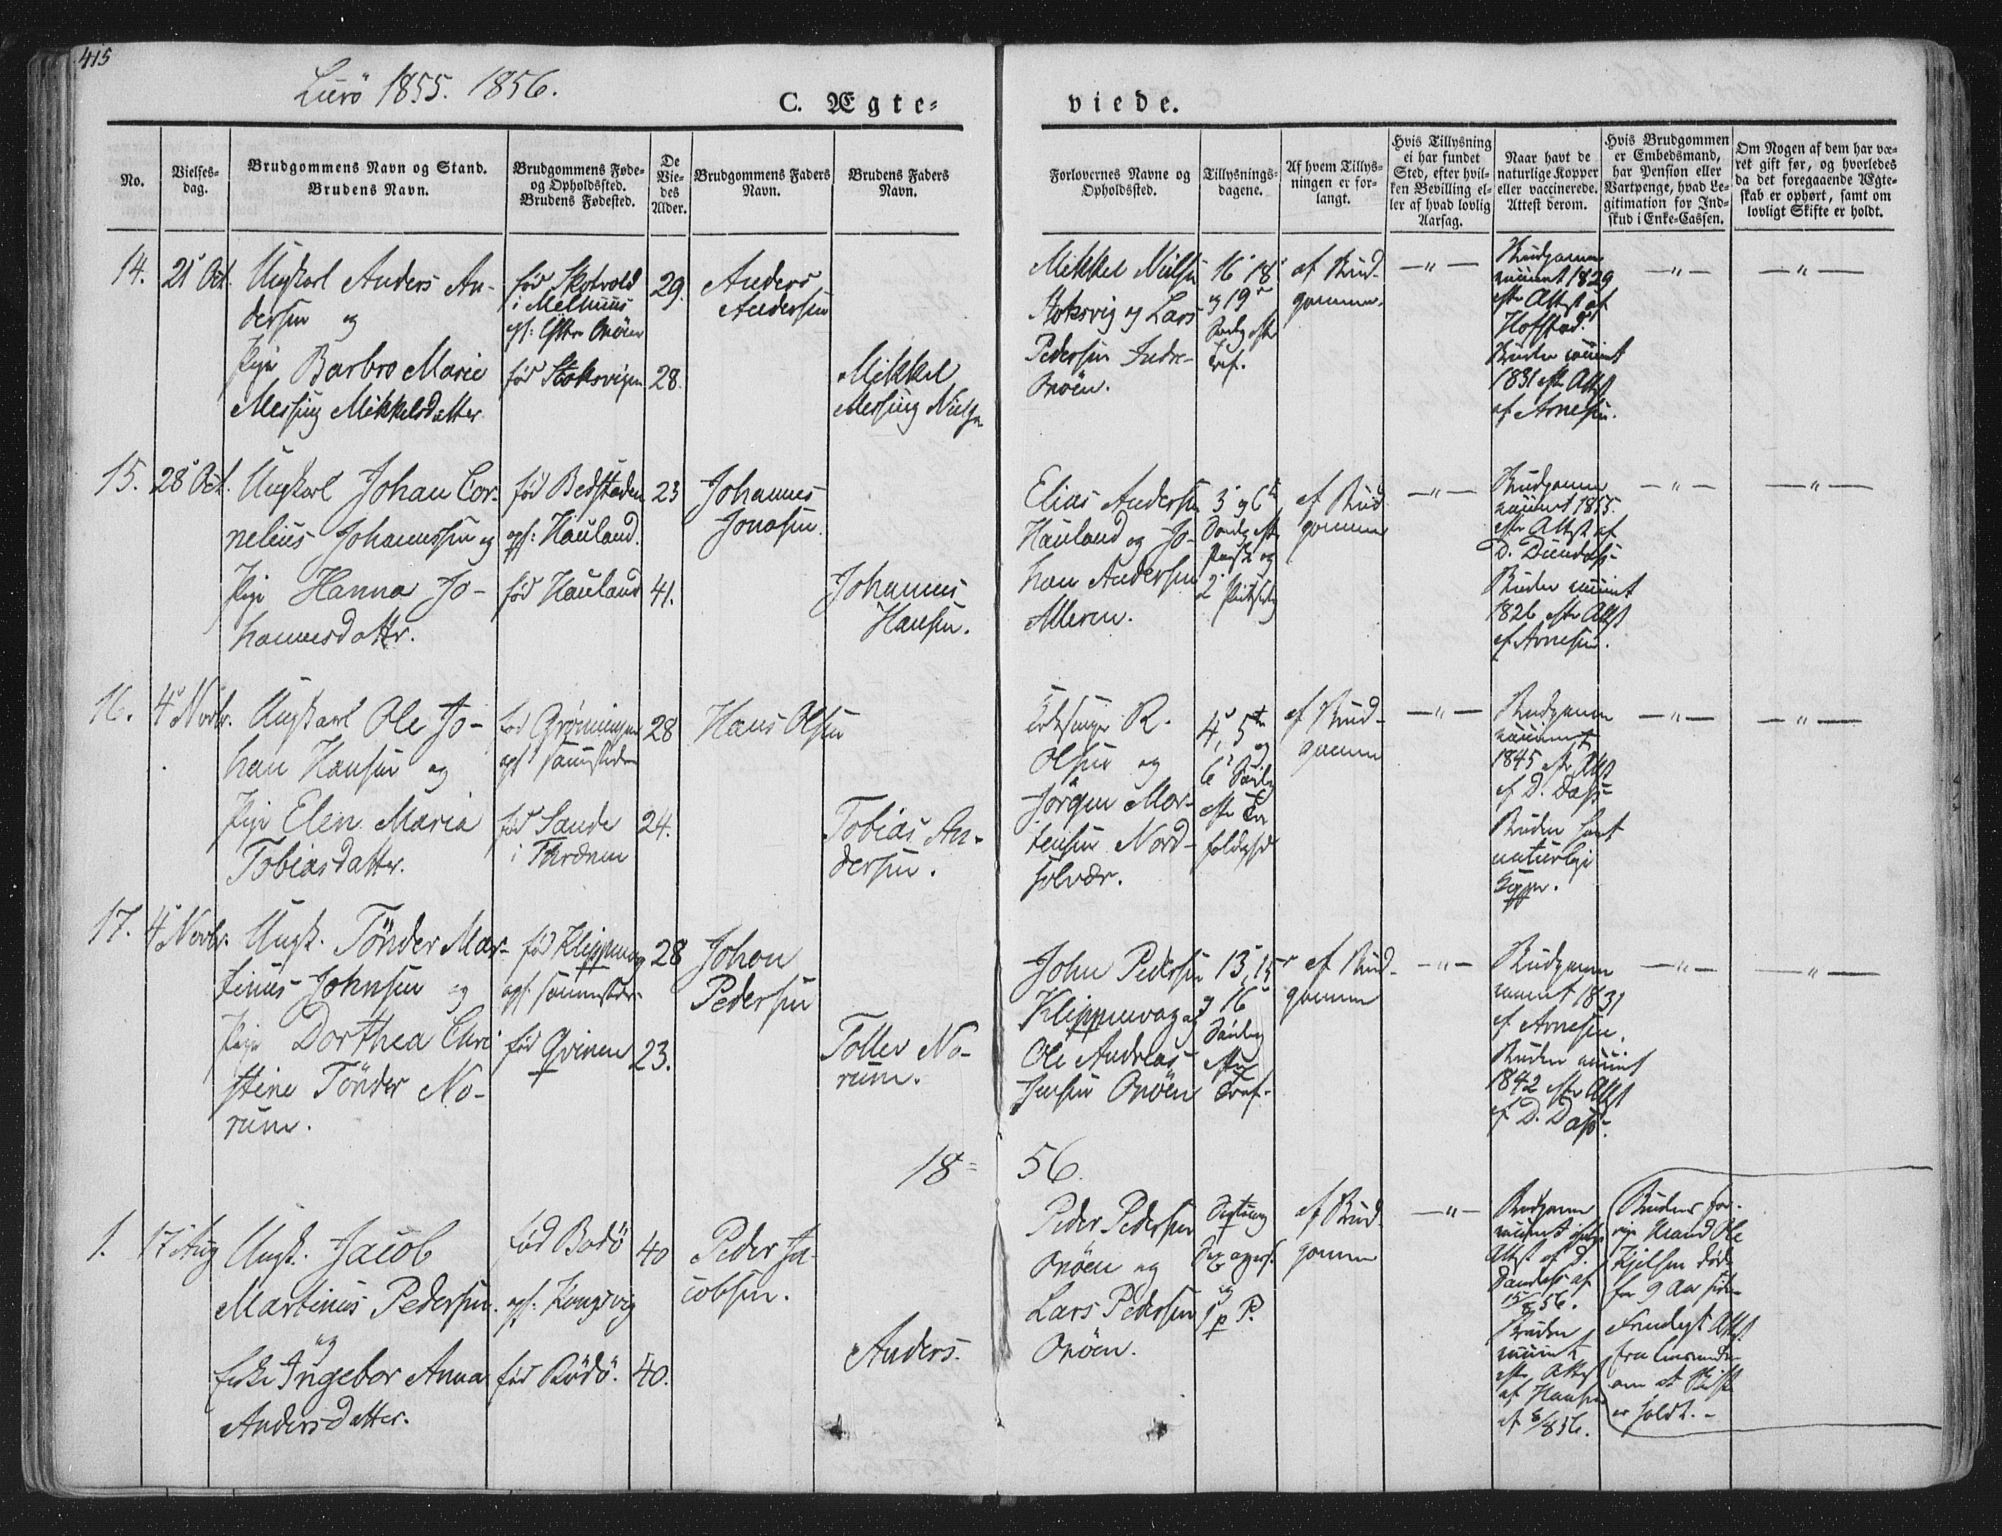 415
Lurö 1855. 1856.
C. Ægte-
viede.
No.
Vielses-
dag.
Brudgommens Navn og Stand.
Brudens Navn.
Brudgommens Føde-
og Opholdsted.
Brudens Fødested.
De
Vie-
des
Alder.
Brudgommens Faders
Navn.
Brudens Faders
Navn.
Forlovernes Navne og
Opholdsted.
Tillysnings-
dagene.
Af hvem Tillys-
ningen er for-
langt.
Hvis Tillysning
ei har fundet
Sted, efter hvil-
ken Bevilling el-
ler af hvad lovlig
Aarsag.
Naar havt de
naturlige Kopper
eller vaccinerede.
Attest derom.
Hvis Brudgommen
er Embedsmand,
har Pension eller
Vartpenge, hvad Le-
gitimation for Ind-
skud i Enke-Cassen.
Om Nogen af dem har væ-
ret gift før, og hvorledes
da det foregaaende Ægte-
skab er ophørt, samt om
lovligt Skifte er holdt.
14.
21 Oct.
Ungkarl Anders An-
dersen og
Pige Barbro Marie
Messing Mikkelsdatter
fød Skotvold
i Melhuus
ops:
Onöen
fød Stoksvigen
29.
28.
Anders
Andersen
Mikkel
Messing Nielsen
Mikkel Nielsen
Stoksvig og Lars
Pedersen Indre-
Onöen.
16 18
og 19
Søndg eft
Tref.
af Brud-
gommen.
—"—
Brudgommen
vaccinert 1829
eftr Attest af
Hofstad.
Bruden vaccint
1831 eftr Attst
af Arnesen.
—"—
—"—
15.
28 Oct.
Ungkarl Johan Cor-
nelius Johannesen og
Pige Hanna Jo-
hannesdattr.
fød Bedstaden
ops: Hauland.
fød Hauland
23
41.
Johannes
Jonasen.
Johannes
Hansen.
Elias Andersen
Hauland og Jo-
han Andersen
Alleren.
3 og 6
Søndg eft
Paaske og
2
af Brud
gommen
—"—
Brudgommen
vaccinert
eftr Attst af
D.
Bruden vaccint
1826 eftr Attst
af Arnesen.
—"—
—"—
16.
4 Novbr.
Ungkarl Ole Jo-
han Hansen og
Pige Elen Maria
Tobiasdatter.
fød Grönningen
ops sammesteds
fød Sande
i Thrænen
28
24.
Hans Olsen
Tobias An-
dersen.
R.
Olsen og
Jörgen Mor-
tensen Nord-
solvær.
4, 5te
og
6 Søndg
eftr Tre
foldighed
af Brud-
gommen
—"—
Brudgommen
vaccinert
1845 eftr Attst
af D. Dass
Bruden havt
naturlige
Kopper.
—"—
—"—
17.
4 Novbr.
Ungk. Tönder Mar-
tinus Johnsen og
Pige Dorthea Chri
stine Tönder No-
rum.
fød Klippenvog
ops: sammesteds
fød Qvinen
28
23.
Johan
Pedersen
Toller No-
rum.
John Pedersen
Klippenvog og
Ole Andreas
Jensen Onöen
13, 15
og 16
Søndag
eftr
Tref.
af Brud-
gommen
—"—
Brudgommen
vaccint 1831
af Arnesen.
Bruden vaccint
1842 eftr Attst
af D. Dass.
—"—
—"—
18-
56.
1.
17 Aug
Ungk. Jacob
Martinus Pedersen.
og
Enke Ingebor Anna
Andersdatter.
fød Bodö
ops: Kongsvig
fød Rödö.
40
40.
Peder Ja-
cobsen.
Anders.
Peder Pedersen
Onöen og
Lars Pedersen
Onöen.
og
p P.
af Brud
gommen
—"—
Brudgommen
vaccinert
Attst af D.
af
15/8 56.
Bruden
vaccint
eftr Attst
af Hansen
af 6/8 56.
Brudens for-
rige Mand Ole
Kjelsen døde
for 9 Aar siden
Fremlagt Attst
fra
om at Skifte
er holdt. -